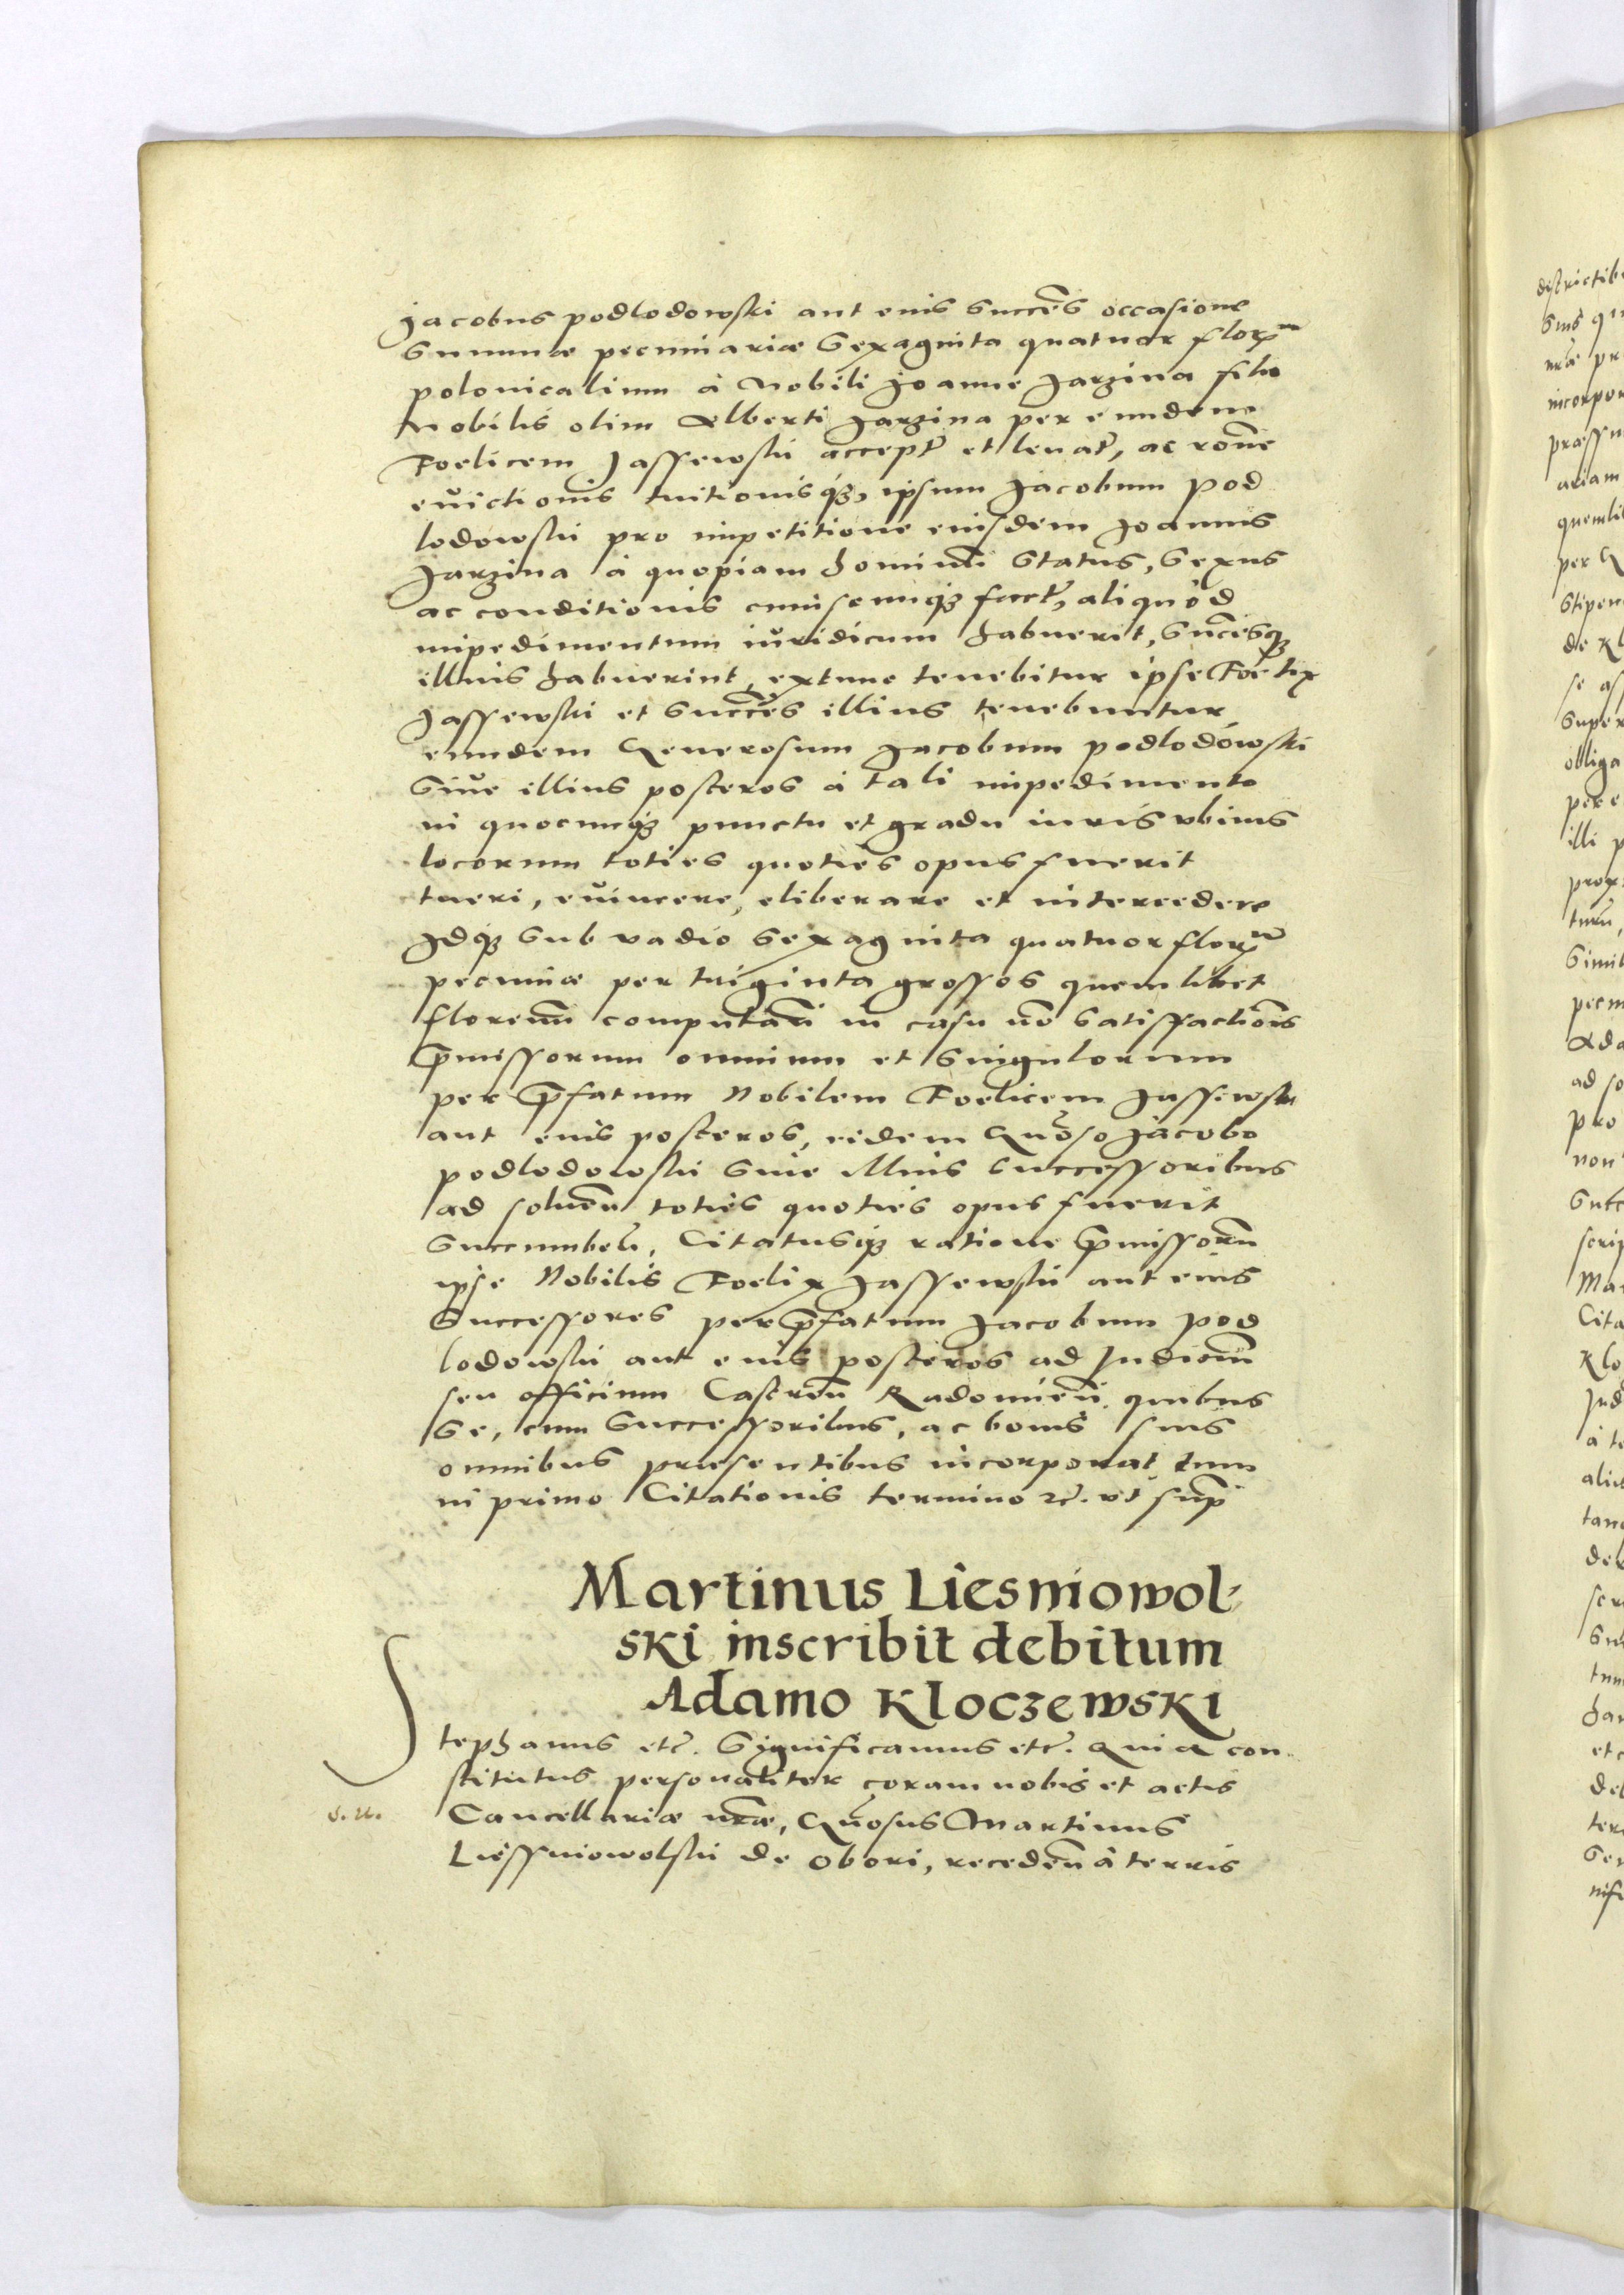 Jacobus podlodowski aut eius succēs occasione
Summæ pecuniariæ Sexaginta quatuor florū
polonicalium à Nobili Joanne Jarzina filio
Nobilis olim Alberti Jarzina per eundem
Foelicem Jassewski accept et levat, ac rōne
evictionis tuitionisq3, ipsum Jacobum Pod
lodowski pro impetitione eiusdem Joannis
Jarzina à quopiam hominū Status, Sexus
ac conditionis cuiuscunq3 fuerit, aliquod
impedimentum iuridicum habuerit, Succēsq3
illius habuerint, extunc tenebitur ipse Foelix
Jassewski et Succēs illius tenebuntur
eundem Generosum Jacobum podlodowski
Sive illius posteros à tali impedimento
in quocunq3 punctu et gradu iuris ubivis
locorum toties quoties opus fuerit
tueri, evincere, eliberare et intercedere
Idq3 Sub vadio Sexaginta quatuor florū
pecuniæ per triginta grossos quemlibet
florenū computań in casu nō Satisfactiōis
pmissorum omnium et Singulorum
per pfatum Nobilem Foelicem Jassewski
aut eius posteros, eidem Gnōso Jacobo
podlodowski Sive illius Successoribus
ad solueń toties quoties opus fuerit
Succumbeń, Citatusq3 ratione pmissorū
ipse Nobilis Foelix Jassewski aut eius
Successores per pfatum Jacobum Pod
lodowski aut eius posteros ad Judiciū
seu officium Castreń Radomień quibus
Se, cum Successoribus, ac bonis suis
omnibus præsentibus incorporat, tum
in primo Citationis termino etc. ut sup
Martinus Liesniowol-
ski inscribit debitum
Adamo Kloczewski
Stephanus etc. Significamus etc. Quia con
stitutus personaliter coram nobis et actis
Cancellariæ nræ, Gnōsus Martinus
Liessniowolski de Obori, recedeń à terris